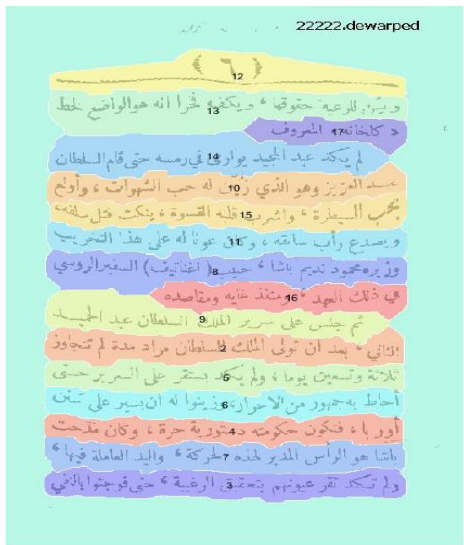 22222.dewarped
( ٦ )
12
ويثبت للرعية حقوقها ، ويكفيه فخرا انه هو الواضع لخط
13
« كلخانه » المعروف
17
لم يكد عبد المجيد يوارى في رمسه حتى قام السلطان
14
عبد العزيز وهو الذي زين له حب الشهوات ، وأولع
10
بحب السيطرة ، واشرب قلبه القسوة ، ينكث فتل سلفه،
15
ويصدع رأب سابقه ، وكان عونا له على هذا التخريب
11
وزيره محمود نديم باشا ، حبيب ( اغناتيف ) السفير الروسي
8
في ذلك العهد ، ومنفذ غايه ومقاصده
16
ثم جلس على سرير الملك السلطان عبد الحميد
9
الثاني ، بعد ان تولى الملك السلطان مراد مدة لم تتجاوز
2
ثلاثة وتسعين يوما ، ولم يكد يستقر على السرير حتى
5
أحاط به جمهور من الاحرار، وزينوا له ان يسير على سنن
6
أوربا ، فتكون حكومته دستورية حرة ، وكان مدحت
4
باشا هو الرأس المدبر لهذه الحركة ، واليد العاملة فيها ،
7
ولم تكد تقر عيونهم بتحقيق الرغبة ، حتى فوجئوا بالنفي
3